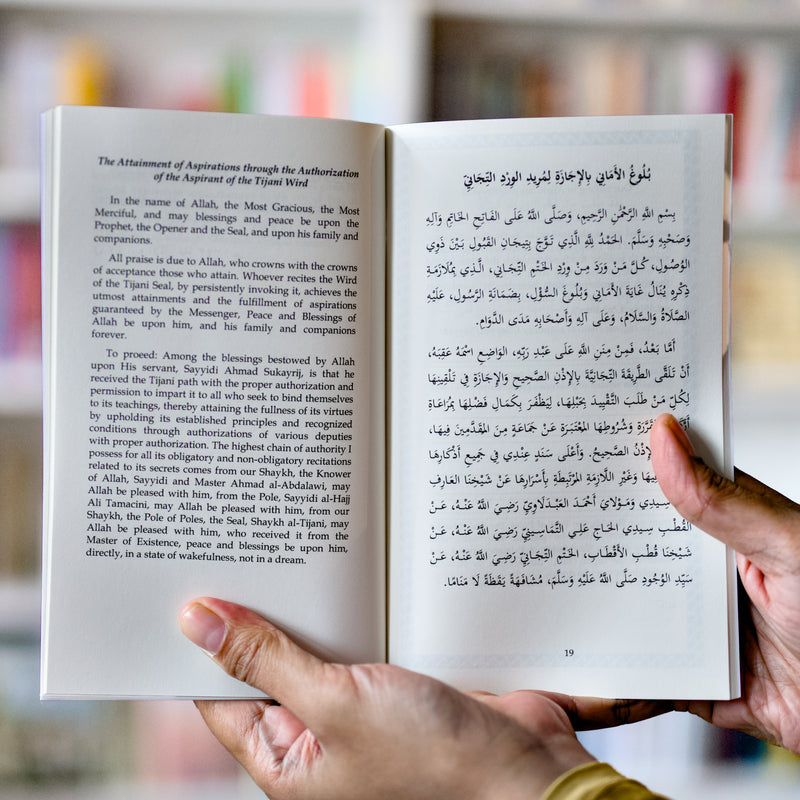 The Attainment of Aspirations through the Authorization
of the Aspirant of the Tijani Wird
In the name of Allah, the Most Gracious, the Most
Merciful, and may blessings and peace be upon the
Prophet, the Opener and the Seal, and upon his family and
companions.
All praise is due to Allah, who crowns with the crowns
of acceptance those who attain. Whoever recites the Wird
of the Tijani Seal, by persistently invoking it, achieves the
utmost attainments and the fulfillment of aspirations
guaranteed by the Messenger, Peace and Blessings of
Allah be upon him, and his family and companions
forever.
To proceed: Among the blessings bestowed by Allah
upon His servant, Sayyidi Ahmad Sukayrij, is that he
received the Tijani path with the proper authorization and
permission to impart it to all who seek to bind themselves
to its teachings, thereby attaining the fullness of its virtues
by upholding its established principles and recognized
conditions through authorizations of various deputies
with proper authorization. The highest chain of authority I
possess for all its obligatory and non-obligatory recitations
related to its secrets comes from our Shaykh, the Knower
of Allah, Sayyidi and Master Ahmad al-Abdalawi, may
Allah be pleased with him, from the Pole, Sayyidi al-Hajj
Ali Tamacini, may Allah be pleased with him, from our
Shaykh, the Pole of Poles, the Seal, Shaykh al-Tijani, may
Allah be pleased with him, who received it from the
Master of Existence, peace and blessings be upon him,
directly, in a state of wakefulness, not in a dream.
بُلُوغُ الأَمَانِي بِالإِجَازَةِ لِمُرِيدِ الوِرْدِ التِّجَانِيِّ
بِسْمِ اللَّهِ الرَّحْمَٰنِ الرَّحِيمِ، وَصَلَّى اللَّهُ عَلَى الفَاتِحِ الخَاتِمِ وَآلِهِ
وَصَحْبِهِ وَسَلَّمَ. الحَمْدُ لِلَّهِ الَّذِي تَوَّجَ بِتِيجَانِ القَبُولِ بَيْنَ ذَوِي
الوُصُولِ، كُلَّ مَنْ وَرَدَ مِنْ وِرْدِ الخَتْمِ التِّجَانِي، الَّذِي بِمُلَازَمَةِ
ذِكْرِهِ يُنَالُ غَايَةَ الأَمَانِي وَبُلُوغَ السُّؤْلِ، بِضَمَانَةِ الرَّسُولِ، عَلَيْهِ
الصَّلَاةُ وَالسَّلَامُ، وَعَلَى آلِهِ وَأَصْحَابِهِ مَدَى الدَّوَامِ.
أَمَّا بَعْدُ، فَمِنْ مِنَنِ اللَّهِ عَلَى عَبْدِ رَبِّهِ، الوَاضِعِ اسْمَهُ عَقِبَهُ،
أَنْ تَلَقَّى الطَّرِيقَةَ التِّجَانِيَّةَ بِالإِذْنِ الصَّحِيحِ وَالإِجَازَةِ فِي تَلْقِينِهَا
لِكُلِّ مَنْ طَلَبَ التَّقْيِيدَ بِحَبْلِهَا، لِيَظْفَرَ بِكَمَالِ فَضْلِهَا بِمُرَاعَاةِ
وَشُرُوطِهَا المُعْتَبَرَةِ عَنْ جَمَاعَةٍ مِنَ المُقَدَّمِينَ فِيهَا،
الصَّحِيحُ. وَأَعْلَى سَنَدٍ عِنْدِي فِي جَمِيعِ أَذْكَارِهَا
وَغَيْرِ اللَّازِمَةِ المُرْتَبِطَةِ بِأَسْرَارِهَا عَنْ شَيْخِنَا العَارِفِ
سِيدِي وَمَوْلَايَ أَحْمَدَ العَبْدَلَاوِيِّ رَضِيَ اللَّهُ عَنْهُ، عَنِ
القُطْبِ سِيدِي الحَاجِ عَلِي التَّمَاسِينِي رَضِيَ اللَّهُ عَنْهُ، عَنْ
شَيْخِنَا قُطْبِ الأَقْطَابِ، الخَتْمِ التِّجَانِيِّ رَضِيَ اللَّهُ عَنْهُ، عَنْ
سَيِّدِ الوُجُودِ صَلَّى اللَّهُ عَلَيْهِ وَسَلَّمَ، مُشَافَهَةً يَقَظَةً لَا مَنَامًا.
19